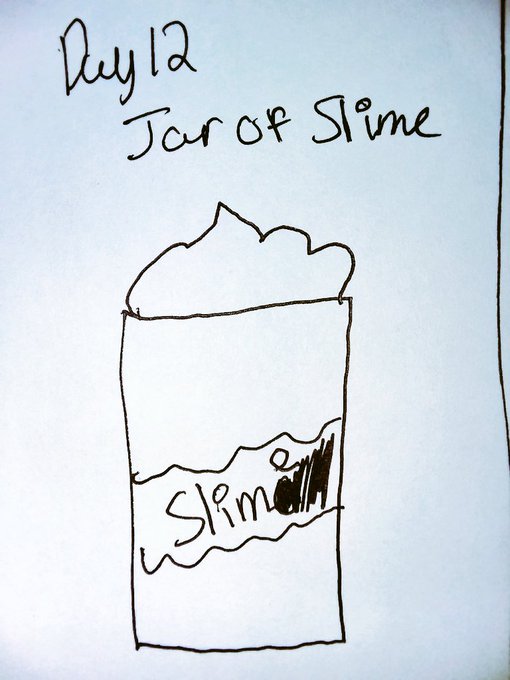 Day 12
Jar of Slime
Slime